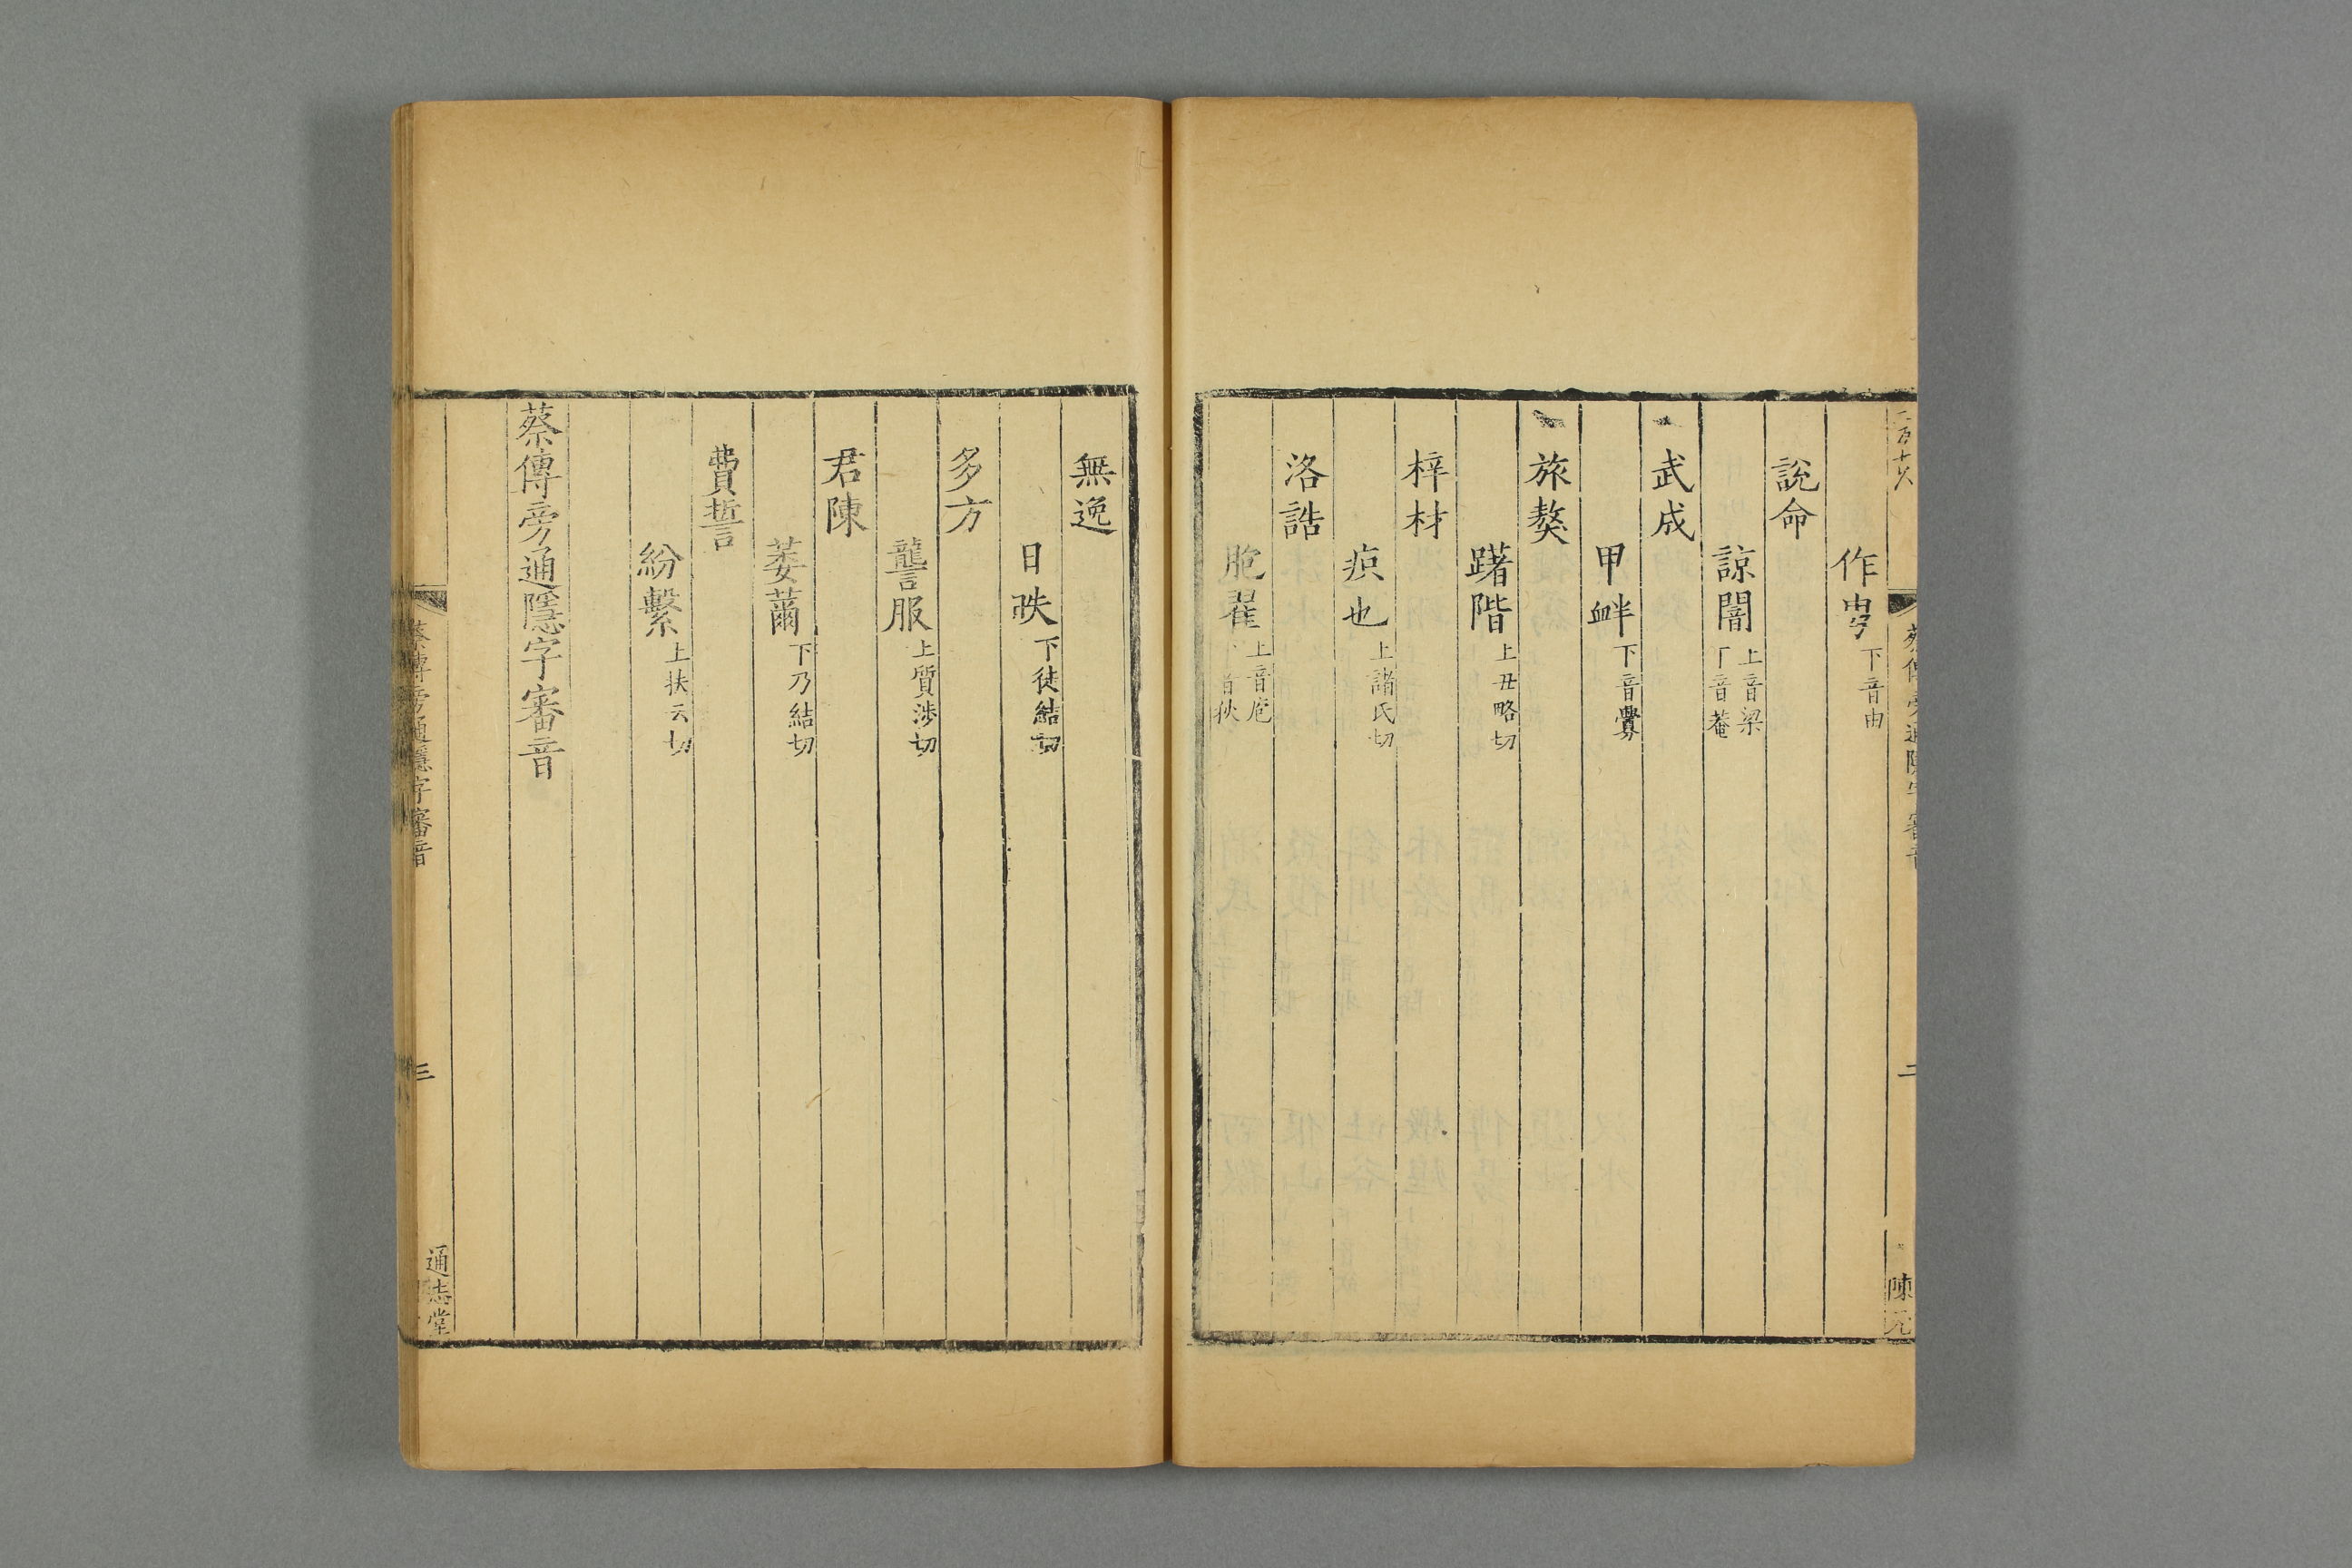 蔡傳旁通隱字審音
二
陳元
作甹下音由
說命
諒闇上音梁下音菴
武成
甲衅下音釁
旅獒
躇階上丑略切
梓材
疻也上諸氏切
洛誥
胞翟上音庖下音狄
無逸
日昳下徒結切
多方
讋服上質涉切
君陳
萎薾下乃結切
費誓
紛繫上扶云切
蔡傳旁通隱字審音
蔡傳旁通隱字審音
三
通志堂